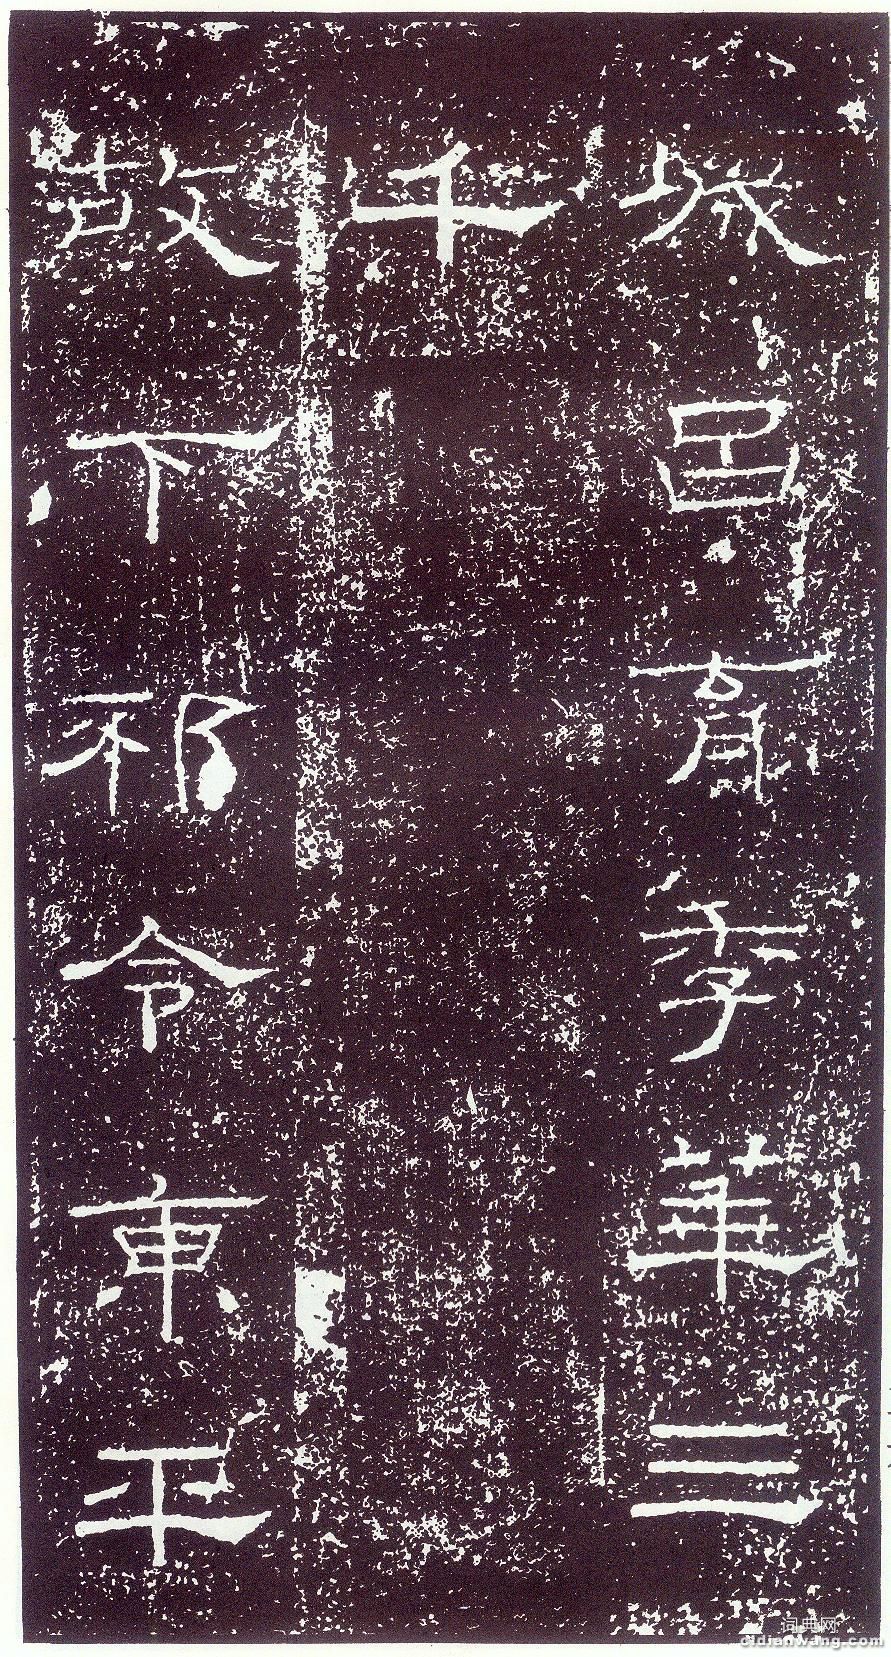 城呂育季華三
千
故下邳令東平
词典网
cidianwang.com